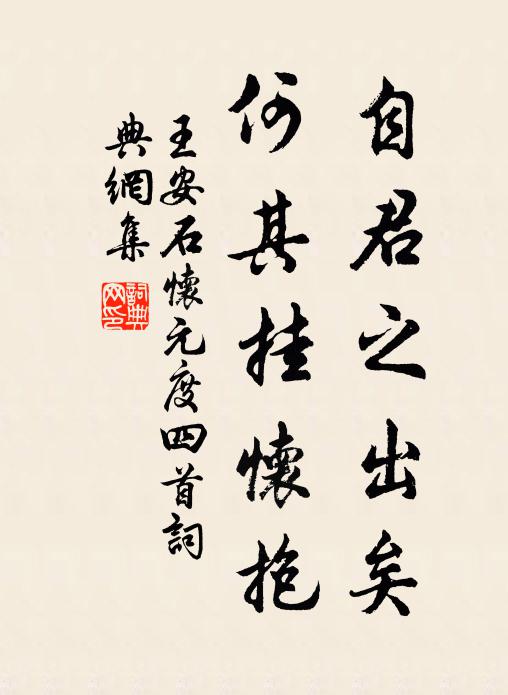 自君之出矣
何其挂懷抱
王安石懷元度四首詞
典網集
詞典
网印